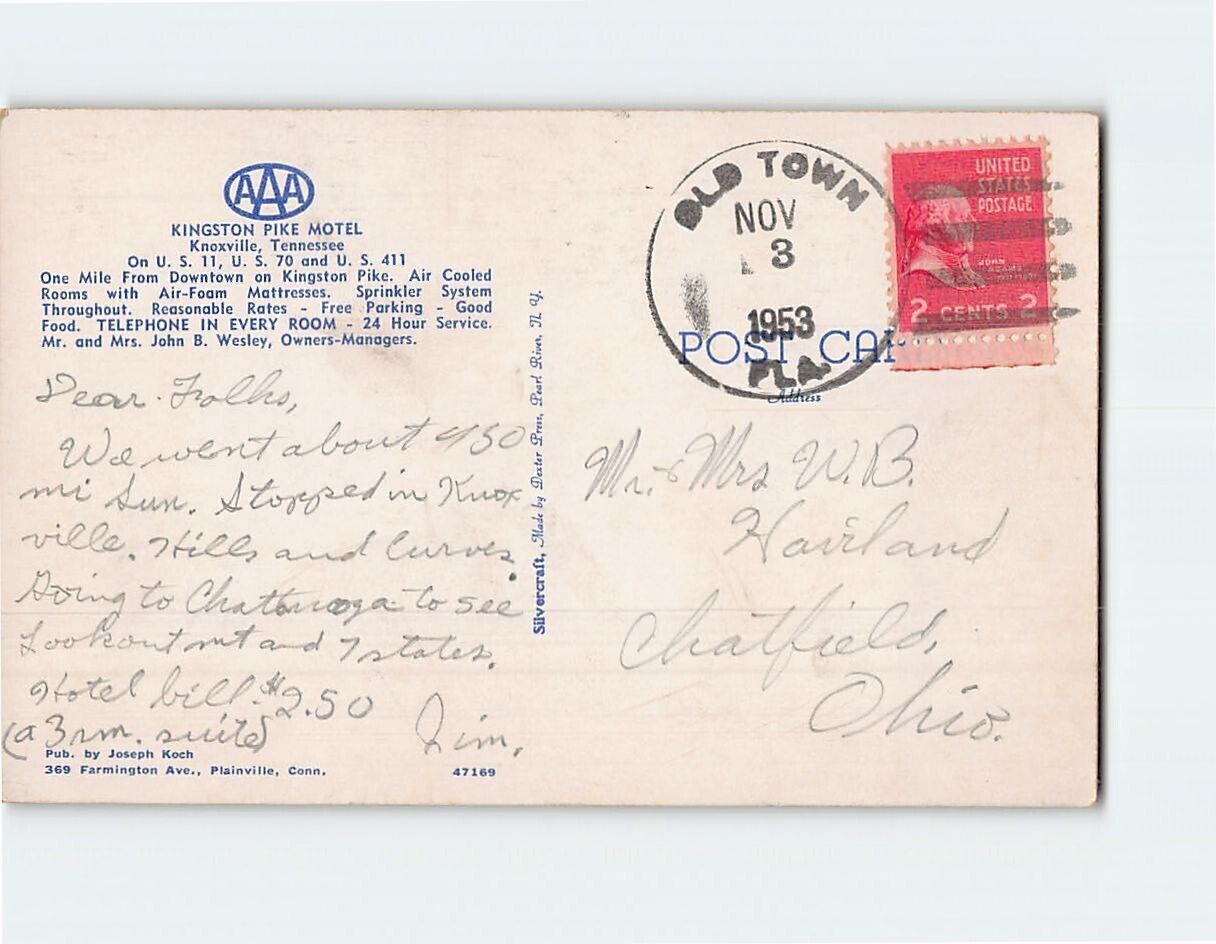 AAA
KINGSTON PIKE MOTEL
Knoxville, Tennessee
On U. S. 11, U. S. 70 and U. S. 411
One Mile From Downtown on Kingston Pike. Air Cooled
Rooms with Air-Foam Mattresses. Sprinkler System
Throughout. Reasonable Rates - Free Parking - Good
Food. TELEPHONE IN EVERY ROOM - 24 Hour Service.
Mr. and Mrs. John B. Wesley, Owners-Managers.
Dear Folks,
We went about 430
mi Sun. Stopped in Knox
ville. Hills and Curves.
Going to Chattanooga to see
Lookout mt and 7 states.
Hotel bill $2.50
(a 3 rm. suite)
Jim.
Pub. by Joseph Koch
369 Farmington Ave., Plainville, Conn.
47169
Silvercraft, Made by Dexter Press, Pearl River, N. Y.
OLD TOWN
NOV
3
1953
FLA.
UNITED
STATES
POSTAGE
JOHN
ADAMS
2 CENTS 2
POST CAR
Address
Mr. & Mrs W.B.
Haviland
Chatfield,
Ohio.